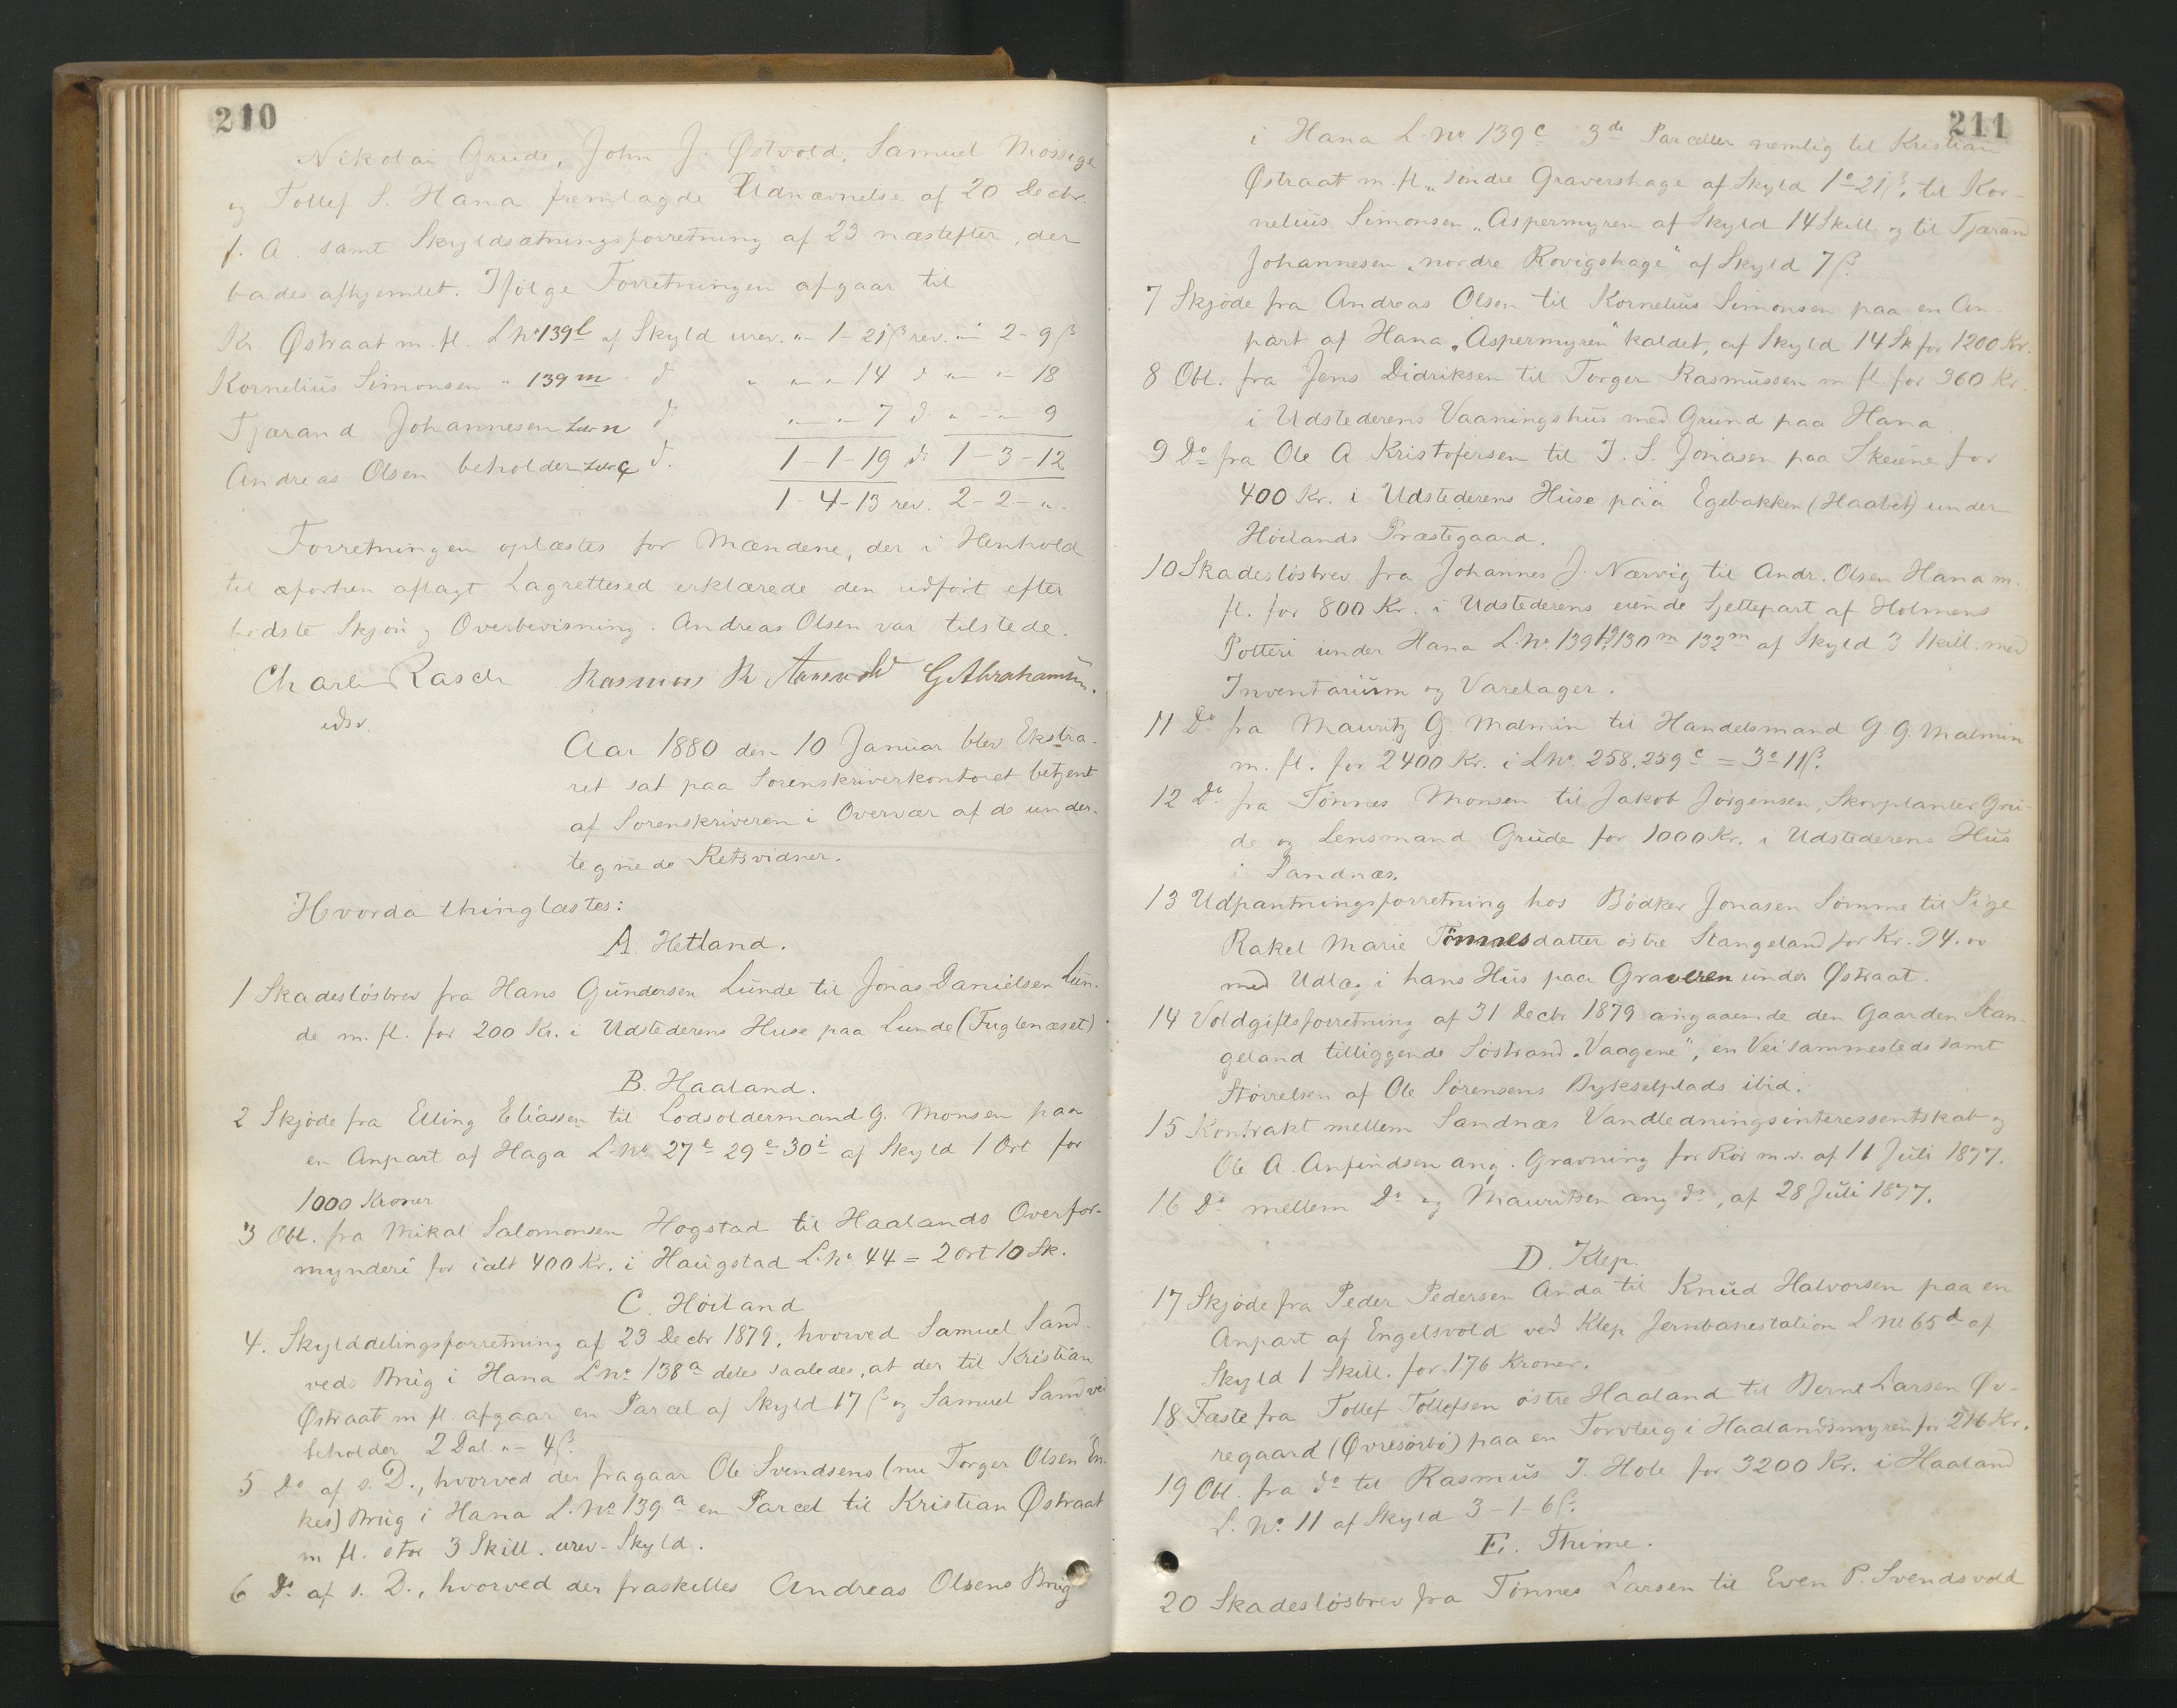 210
Nikolai Grude, John J. Østvold, Samuel Mossige
og Tollef S. Hana fremlagde Udnævnelse af 20 Decbr.
f. A. samt Skyldsætningsforretning af 23 næstefter, der
bades afhjemlet. Ifølge Forretningen afgaar til
Kr. Østraat m. fl. L.No 139l af Skyld urev. „- 1-21 β rev. „- 2-9 β
Kornelius Simonsen „ 139m do „ „- „ 14 do „- „- 18
Tjærand Johannesen n do „- „- 7 do „- „- 9
Andreas Olsen beholder c do. 1-1-19 do 1-3-12
1-4-13 rev. 2-2-„.
Forretningen oplæstes for Mændene, der i Henhold
til aflagt Lagrettesed erklærede den udført efter
bedste Skjøn og Overbevisning. Andreas Olsen var tilstede.
Charles Rasch Rasmus R G. Abrahamsen.
edsv.
Aar 1880 den 10 Januar blev Ekstra-
ret sat paa Sorenskriverkontoret betjent
af Sorenskriveren i Overvær af de under-
tegnede Retsvidner.
Hvorda thinglæstes:
A. Hetland.
1 Skadesløsbrev fra Hans Gundersen Lunde til Jonas Danielsen Lun-
de m. fl. for 200 Kr. i Udstederens Huse paa Lunde (Fuglenæset)
B. Haaland.
2 Skjøde fra Elling Eliassen til Lodsoldermand G. Monsen paa
en Anpart af Haga L.No. 27e 29e 30i af Skyld 1 Ort for
1000 Kroner
3 Obl. fra Mikal Salomonsen Hogstad til Haalands Overfor-
mynderi for ialt 400 Kr. i Haugstad L.No. 44 = 2 Ort 10 Sk.
C. Høiland
4. Skylddelingsforretning af 23 Decbr 1879, hvorved Samuel Sand-
veds Brug i Hana L.No. 138a deles saaledes, at der til Kristian
Østraat m fl. afgaar en Parcel af Skyld 17 β og Samuel Sandved
beholder 2 Dal. „- 4 β.
5 Do af s. D., hvorved der fragaar Ole Svendsens (nu Torger Olsen En-
kes) Brug i Hana L.No 139a en Parcel til Kristian Østraat
m fl. stor 3 Skill. urev. Skyld.
6 Do af s. D., hvorved der fraskilles Andreas Olsens Brug
211
i Hana L.No 139c 3de Parceller nemlig til Kristian
Østraat m. fl. „søndre Gravershage af Skyld 1o-21 β, til Kor-
nelius Simonsen „Aspermyren af Skyld 14 Skill. og til Tjærand
Johannesen „nordre Rovigshage“ af Skyld 7 β.
7 Skjøde fra Andreas Olsen til Kornelius Simonsen paa en An-
part af Hana „Aspermyren“ kaldet, af Skyld 14 Sk for 1200 Kr.
8 Obl. fra Jens Didriksen til Torger Rasmussen m fl. for 360 Kr.
i Udstederens Vaaningshus med Grund paa Hana
9 Do fra Ole A Kristofersen til T. S. Jonasen paa Skeiene for
400 Kr. i Udstederens Huse paa Egebakken (Haabet) under
Høilands Præstegaard.
10 Skadesløsbrev fra Johannes J. Nærvig til Andr. Olsen Hana m.
fl. for 800 Kr. i Udstederens eiende Sjettepart af Holmens
Potteri under Hana L.No. 139 130m 132m af Skyld 3 Skill. med
Inventarium og Varelager.
11 Do fra Mauritz G. Malmin til Handelsmand G. G. Malmin
m. fl. for 2400 Kr. i LNo. 258. 259c = 3o 11 β.
12 Do fra Tønnes Monsen til Jakob Jørgensen, Skovplanter Gru-
de og Lensmand Grude for 1000 Kr. i Udstederens Hus
i Sandnæs.
13 Udpantningsforretning hos Bødker Jonasen Sømme til Pige
Rakel Marie Tønnesdatter østre Stangeland for Kr. 94.00
med Udlæg i hans Hus paa Graveren under Østraat.
14 Voldgiftsforretning af 31 Decbr 1879 angaaende den Gaarden Stan-
geland tilliggende Søstrand „Vaagene“, en Vei sammesteds samt
Størrelsen af Ole Sørensens Bykselplads ibid.
15 Kontrakt mellem Sandnæs Vandledningsinteressentskab og
Ole A. Anfindsen ang. Gravning for Rør m.v. af 11 Juli 1877.
16 Do mellem Do og Mauritsen ang do, af 28 Juli 1877.
D. Klep.
17 Skjøde fra Peder Pedersen Anda til Knud Halvorsen paa en
Anpart af Engelsvold ved Klep Jernbanestation L No 65d af
Skyld 1 Skill. for 176 Kroner.
18 Fæste fra Tollef Tollefsen østre Haaland til Bernt Larsen Øv-
regaard (Øvresørbø) paa en Torvteig i Haalandsmyren for 216 Kr.
19 Obl. fra do til Rasmus T. Hole for 3200 Kr. i Haaland
L. No. 11 af Skyld 3-1-6 β.
E. Thime.
20 Skadesløsbrev fra Tønnes Larsen til Even P. Svendsvold